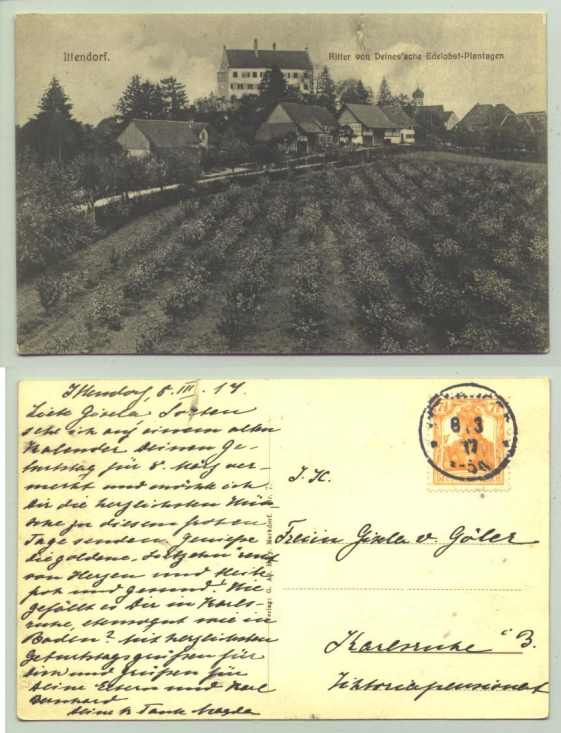 Ittendorf.
Ritter von Deines'sche Edelobst-Plantagen
Ittendorf, 8. III. 17.
Liebe Gisela Soeben
sehe ich auf einem alten
Kalender Deinen Ge-
burtstag für 8. März ver-
merkt und möchte ich
Dir die herzlichsten Wün-
sche zu diesem frohen
Tage senden. Geniesse
die goldene "Siebzehn" recht
von Herzen und bleibe
froh und gesund. Wie
gefällt es Dir in Karls-
ruhe, ebensogut wie in
Baden? Mit herzlichsten
Geburtstagsgrüßen für
Dich und Grüßen für
Deine Eltern und Karl
Bernhard
Deine Tante Magda
8.3
17
I. H.
Freiin Gisela v. Göler
Karlsruhe i/B.
Viktoriapensionat